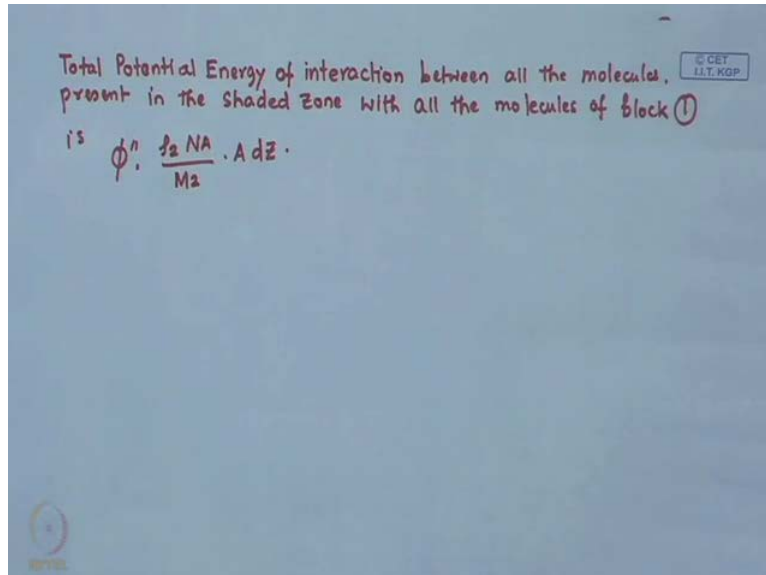 Total Potential Energy of interaction between all the molecules.
© CET
I.I.T. KGP
present in the Shaded Zone with all the molecules of block ①
is
ϕ". ρ2 NA / M2 . A dz .
NPTEL